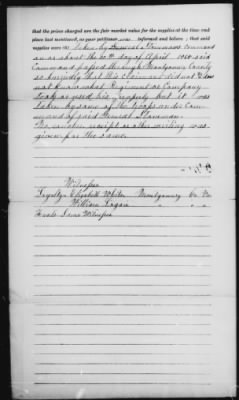 that the prices charged are the fair market value for the supplies at the time and
place last mentioned, as your petitioner was informed and believes, that said
supplies were taken by General Stoneman's command
on or about the 10th day of April 1865 said
Command passed through Montgomery County
so hurriedly that this claimant did not & does
not know what Regiment or Company
took or used his property but it was
taken by some of the troops under Com-
mand of said General Stoneman.
No voucher receipt or other writing was
given for the same.
Witnesses
Loyalty Elizabeth White Montgomery Co. Va
William Logan " " "
Facts Same Witnesses